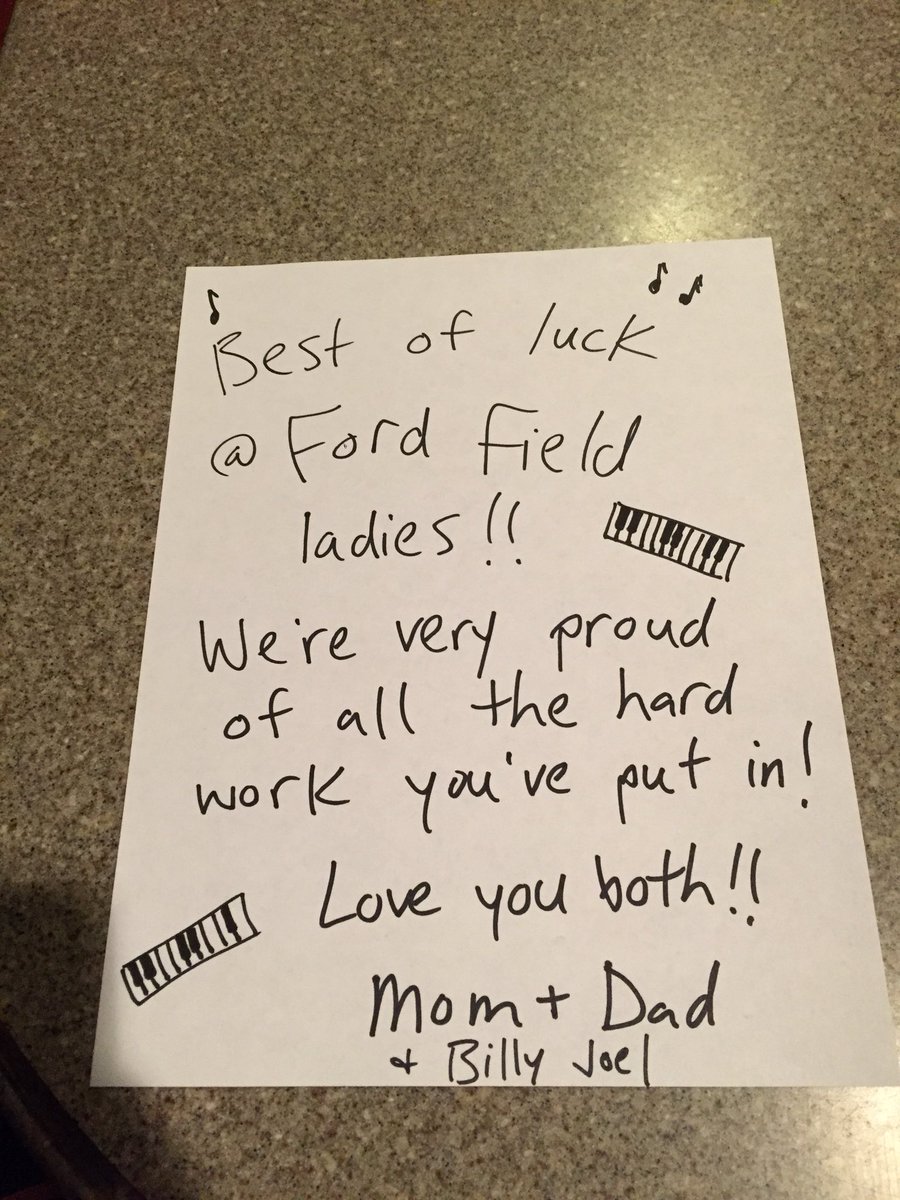 Best of luck
@ Ford Field
ladies!!
We're very proud
of all the hard
work you've put in!
Love you both!!
Mom + Dad
+ Billy Joel